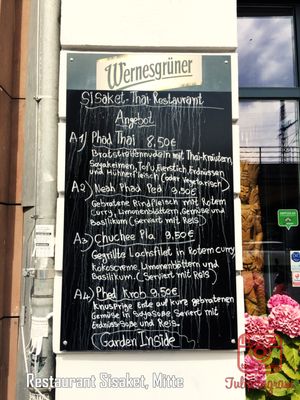 Wernesgrüner
Sisaket-Thai-Restaurant
Angebot
A1) Phad Thai 8,50€
Bratstreifennudeln mit Thai-Kräutern,
Soyakeimen, Tofu, Eierstich, Erdnüssen
und Hühnerfleisch (oder Vegetarisch)
A2) Neah Phad Ped 9,50€
Gebratene Rindfleisch mit Rotem
Curry, Limonenblättern, Gemüse und
Basilikum (Serviert mit Reis)
A3) Chuchee Pla 9.50€
Gegrillte Lachsfilet in Rotem Curry
Kokoscreme Limonenblättern und
Basilikum. (Serviert mit Reis)
A4) Phed Krob 9,50€
Knusprige Ente auf kurz gebratenen
Gemüse in Soyasoße Serviert mit
Erdnuss-Soße und Reis.
(Garden Inside)
Restaurant Sisaket, Mitte